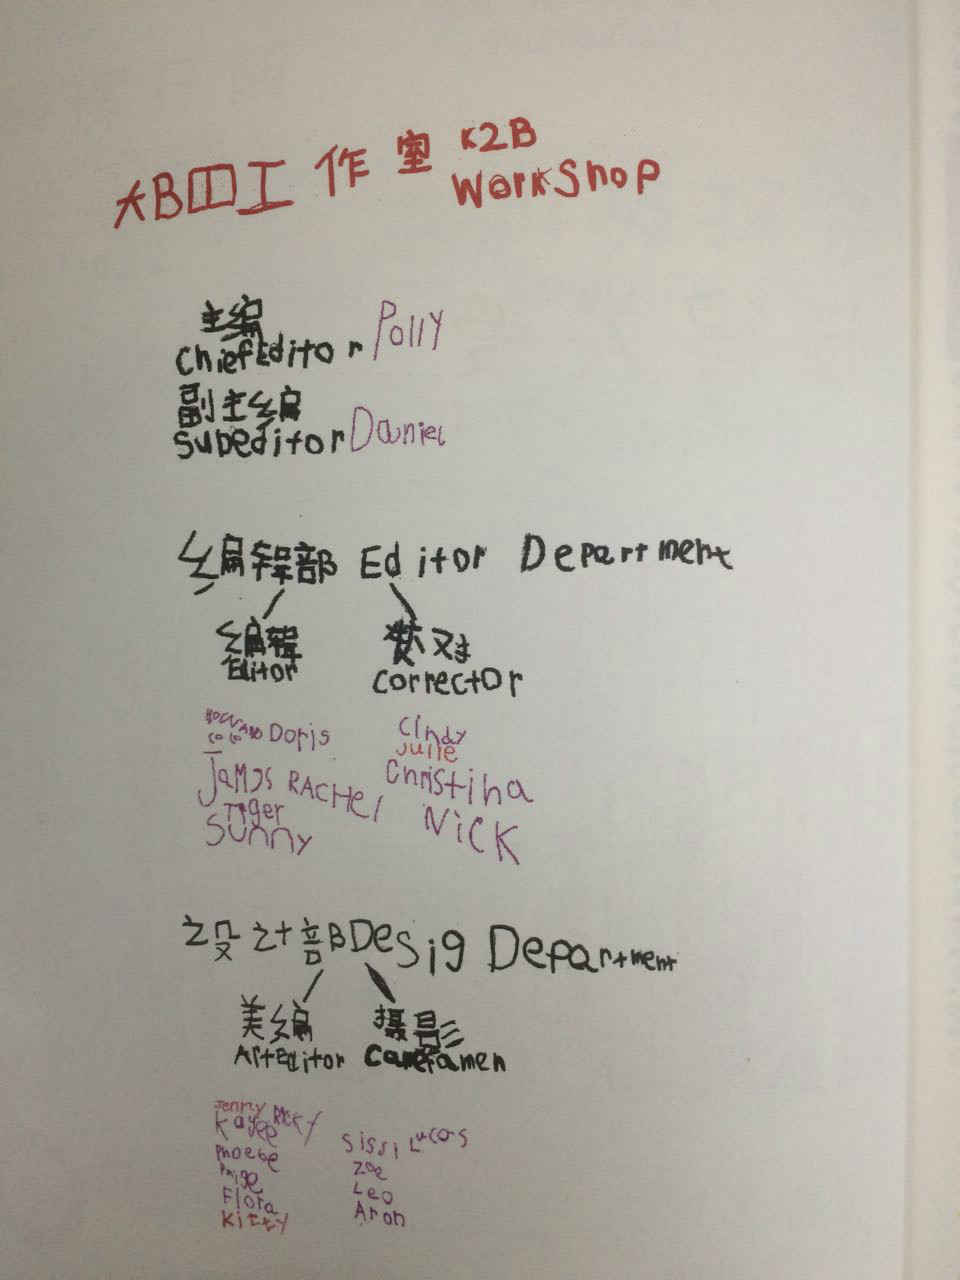 大B四工作室 K2B
WorkShop
主编
chiefEditor Polly
副主编
subeditor Daniel
编辑部 Editor Department
编辑
Editor
校对
corrector
Doris
James RACHEL
Tiger
Sunny
Cindy
Julie
Christina
NiCK
设计部 Desig Department
美编
ArtEditor
摄影
Cameramen
Jenny RICKY
Kayee
Phoebe
Paige
Flora
Kitty
Sissi Lucas
Zoe
Leo
Aron